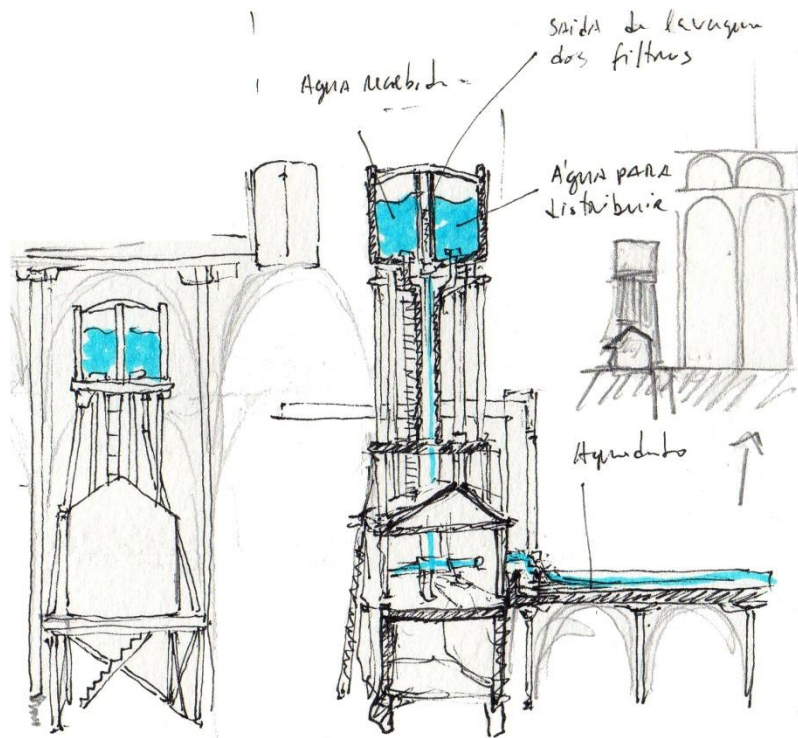 saída de lavagem
dos filtros
Água recebida
Água para
distribuir
Aqueduto